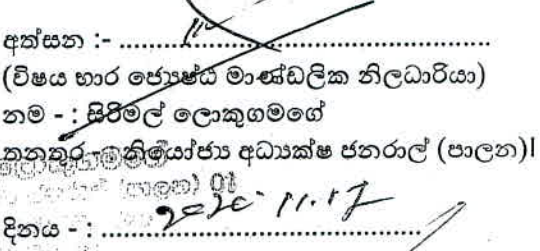 අත්සන :- ..........................................................
(විෂය භාර ජ්‍යෙෂ්ඨ මාණ්ඩලික නිලධාරියා)
නම - : සිරිමල් ලොකුගමගේ
තනතුර - නියෝජ්‍ය අධ්‍යක්ෂ ජනරාල් (පාලන)I
(පාලන) 01
දිනය - : ..........................................................